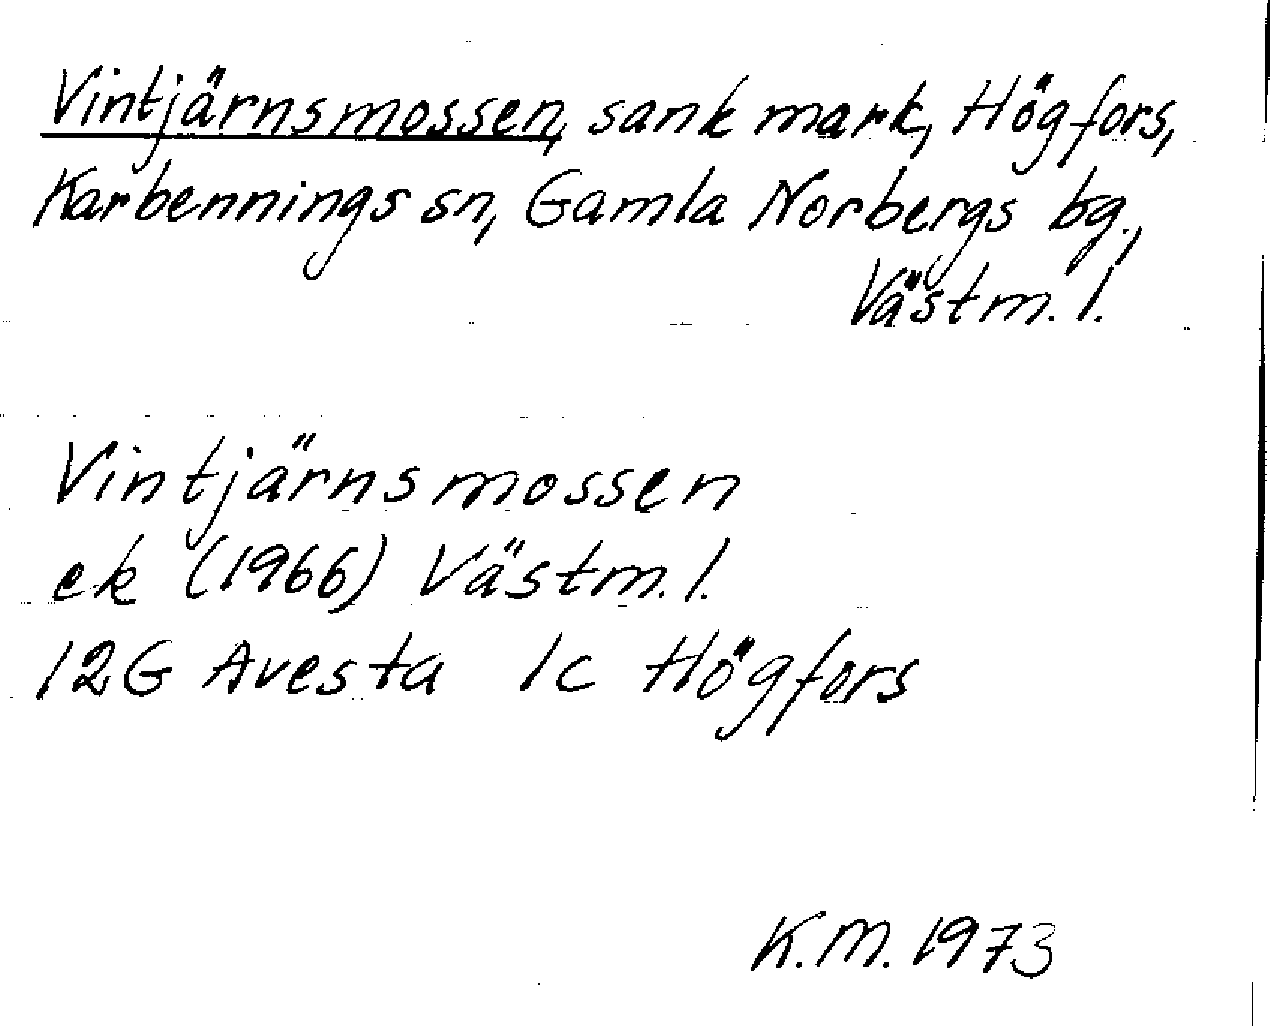 Vintjärnsmossen, sank mark, Högfors,
Karbennings sn, Gamla Norbergs bg.,
Västm. l.
Vintjärnsmossen
ek (1966) Västm. l.
12G Avesta 1c Högfors
K.M. 1973